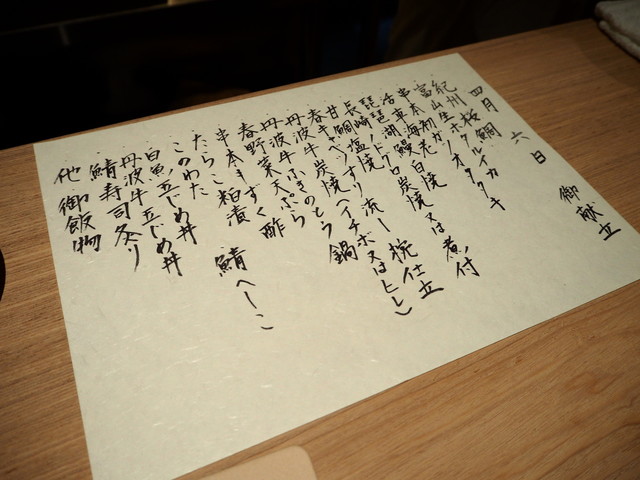 四月六日 御献立
紀州桜鯛
富山生ホタルイカ
串本初ガツオタタキ
活車海老
琵琶湖鰻白焼
長崎ノドグロ炭焼又は煮付
甘鯛塩焼
春キャベツすり流し椀仕立
丹波牛炭焼(イチボ又はヒレ)
丹波牛ふきのとう鍋
春野菜天ぷら
串本もずく酢
たらこ粕漬 鯖へしこ
このわた
白魚玉じめ丼
丹波牛玉じめ丼
鯖寿司炙り
他御飯物